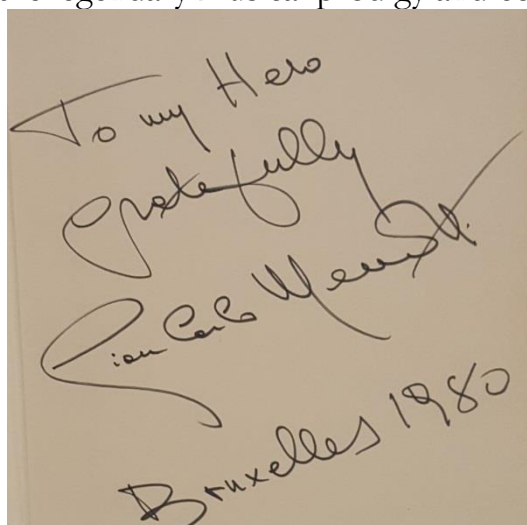 To my Hero
gratefully
Gian Carlo Menotti
Bruxelles 1980